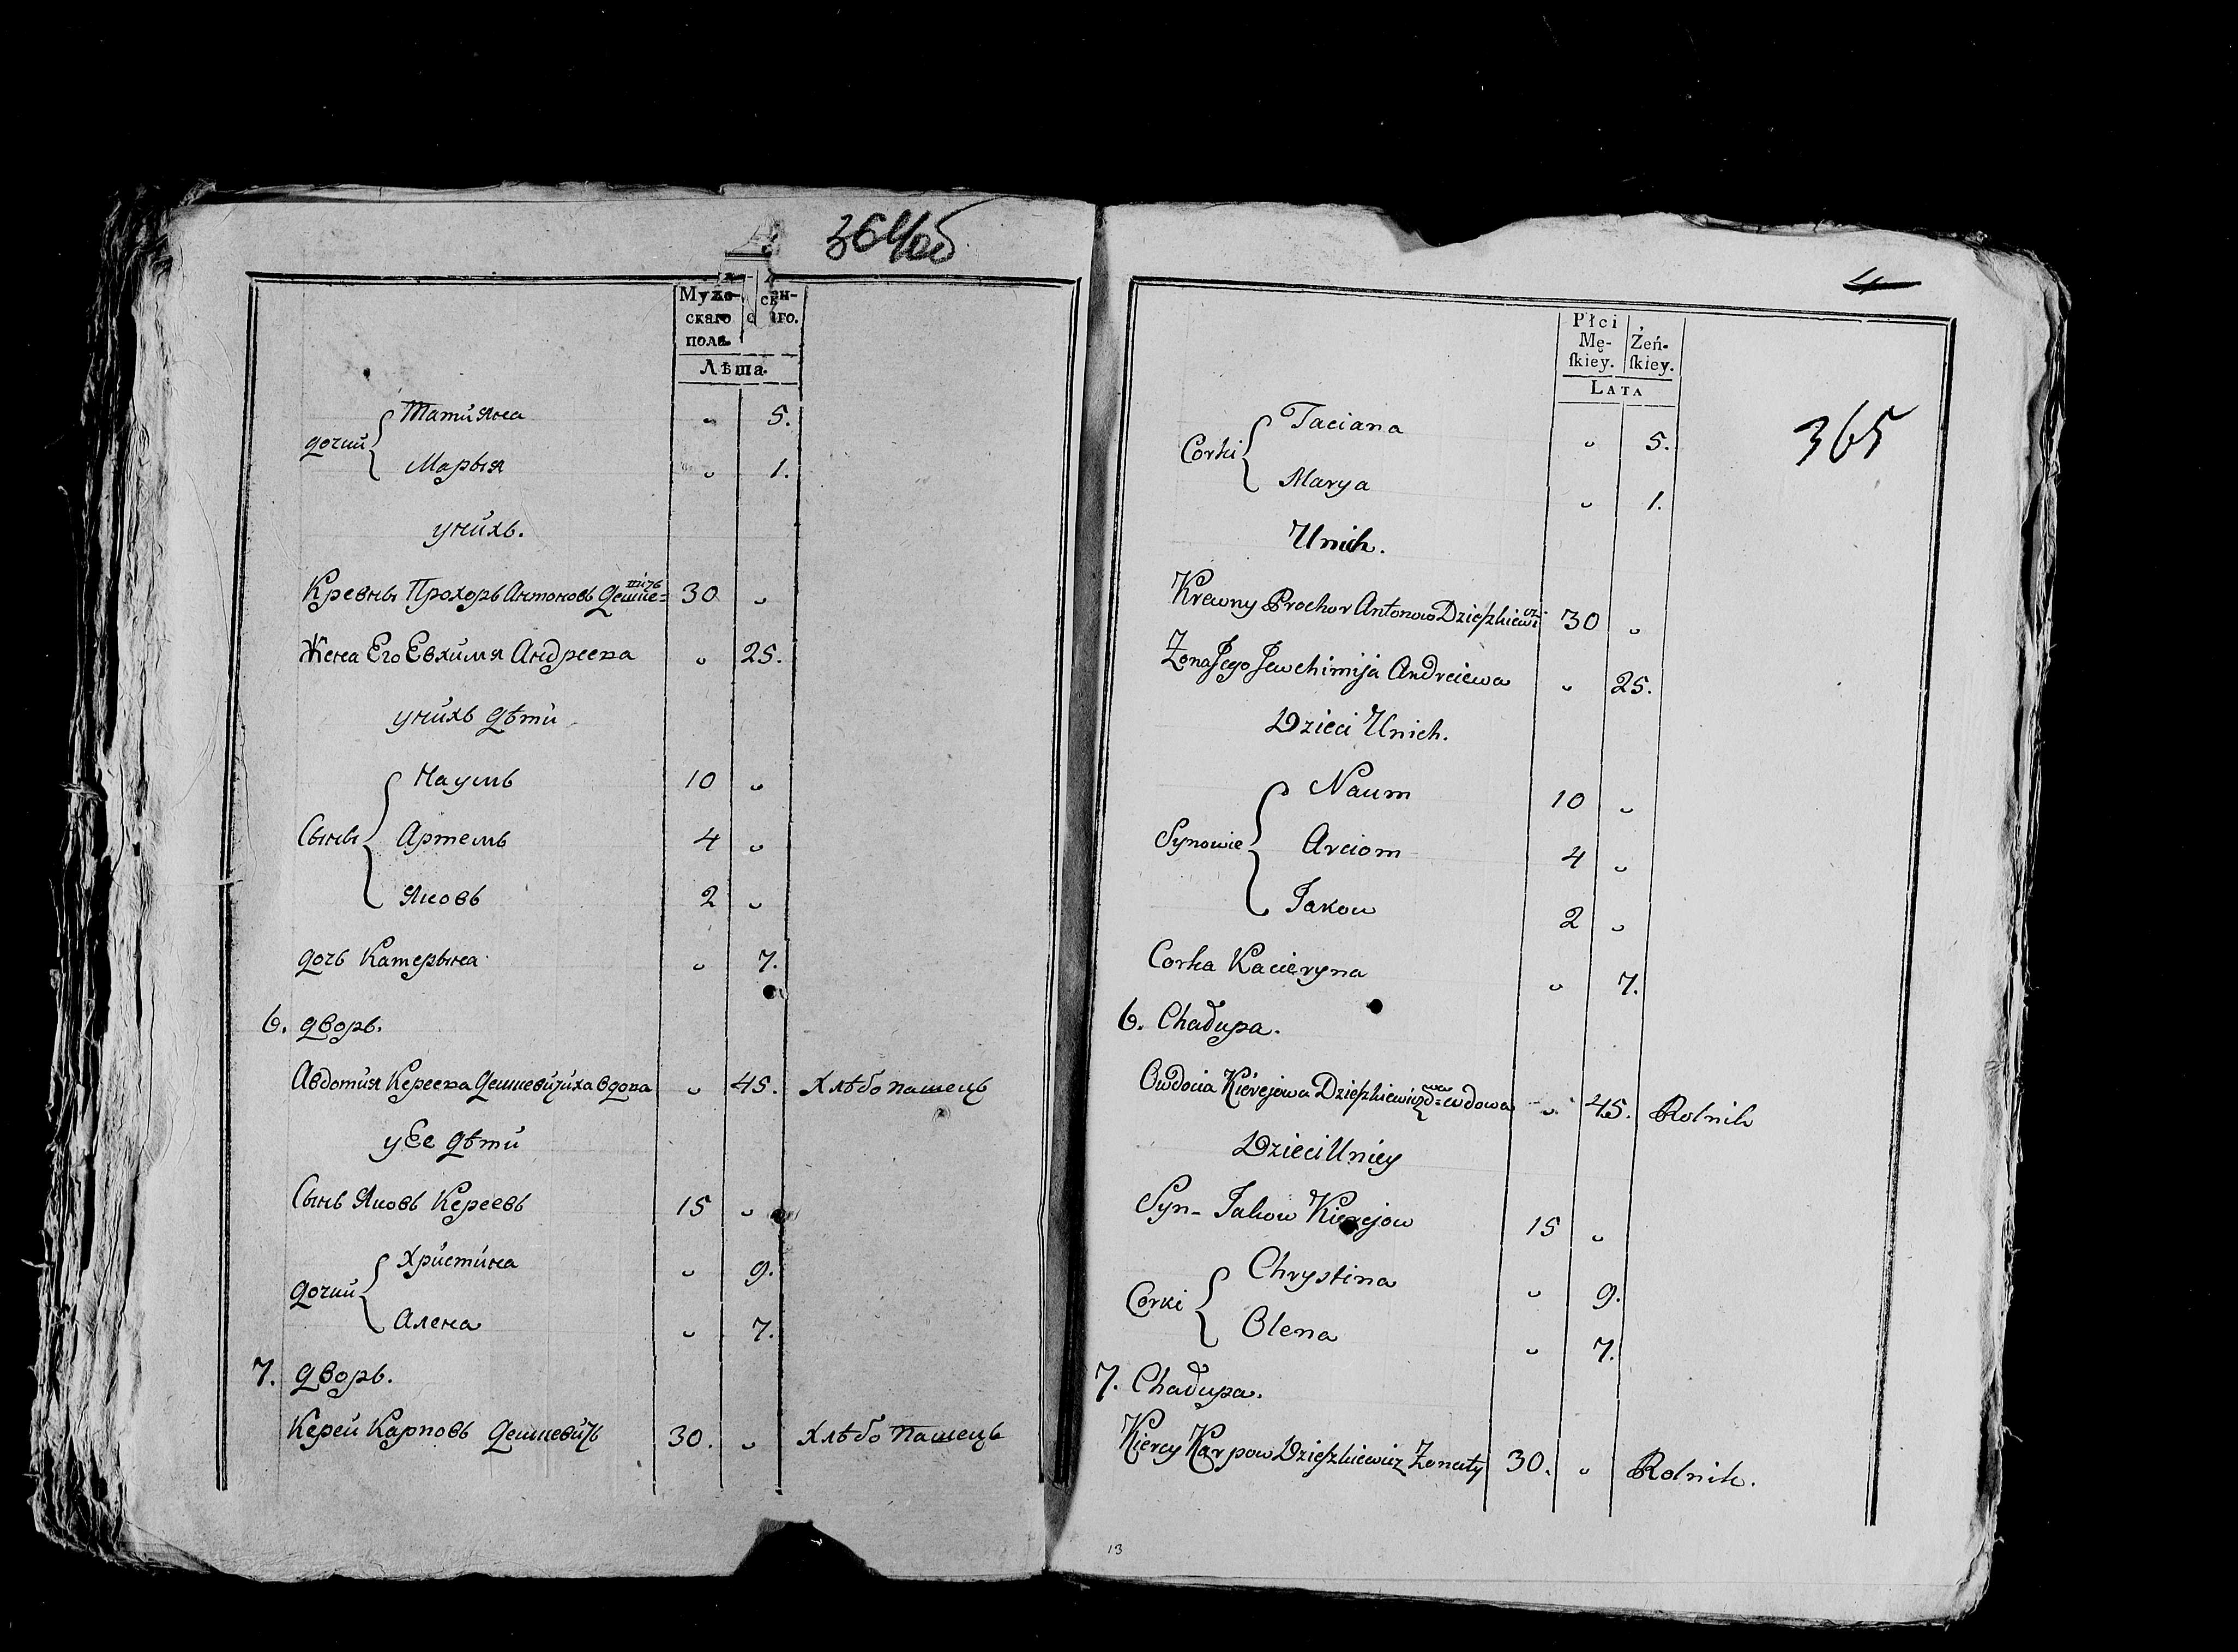 364об
Муже-
скаго
пола.
Лѣта.
дочки
Татияна " 5.
Марья " 1.
унихъ.
Кревны Прохоръ Антоновъ Дешке= 30 "
Жена Его Евхимя Андреева " 25.
унихъ дѣти
Наумъ 10 "
Сыны Артемъ 4 "
Яковъ 2 "
дочь Катерына " 7.
6. дворъ.
Авдотия Кереева Дешкевичиха вдова " 45. Хлѣбопашецъ
у Ее дѣти
Сынъ Яковъ Кереевъ 15 "
Христина " 9.
дочки
Алена " 7.
7. дворъ.
Керей Карповъ Дешкевичъ 30. " Хлѣбопашецъ
4
Płci
Mę-
ſkiey.
Żeń-
ſkiey.
LATA
365
Taciana " 5.
Corki
Marya " 1.
Unich.
Krewny Prochor Antonow Dzieszkiewicz 30 "
Zona Jego Jewchimija Andreiewa " 25.
Dzieci Unich.
Naum 10 "
Synowie Arciom 4 "
Jakow 2 "
Corka Kacieryna " 7.
6. Chałupa.
Owdocia Kierejowa Dzieszkiewiczowa wdowa " 45. Rolnik
Dzieci Uniey
Syn - Jakow Kierejow 15 "
Chrystina " 9.
Corki
Olena " 7.
7. Chałupa.
Kierey Karpow Dzieszkiewicz Zonaty 30. " Rolnik.
13